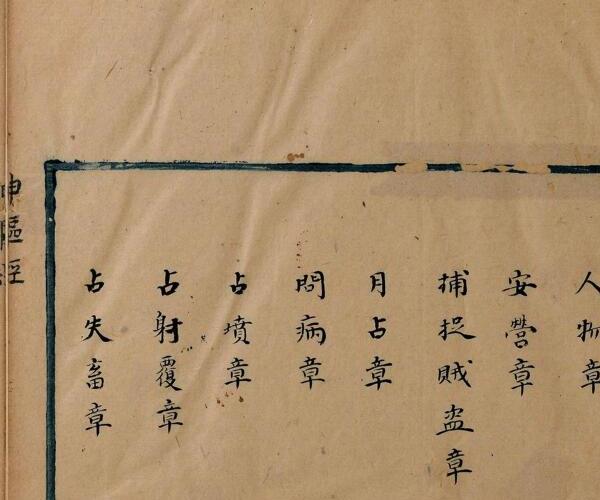 人物章
安營章
捕捉賊盗章
月占章
問病章
占墳章
占射覆章
占失畜章
神樞經